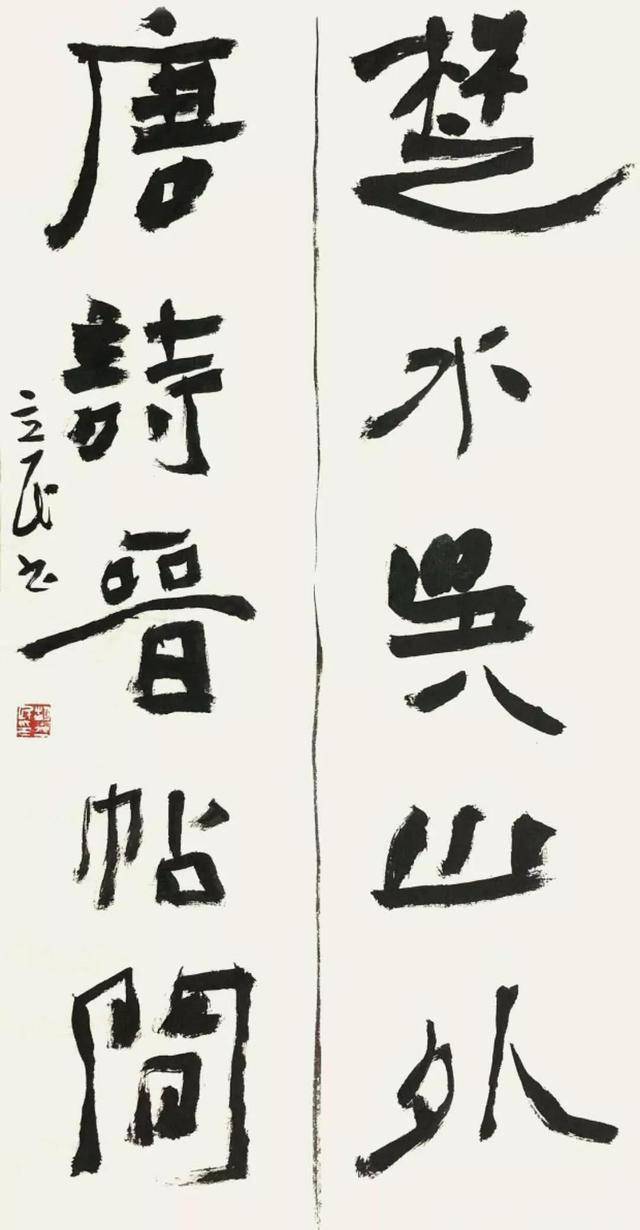 楚水吳山外
唐詩晉帖間
立民书